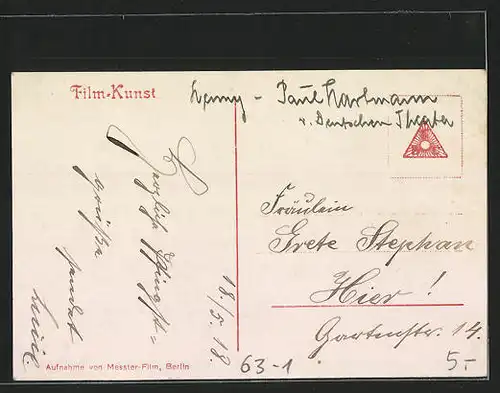 Film-Kunst
Henny – Paul Hartmann
v. Deutschen Theater
Herzliche Pfingst=
grüße
sendet
18./5.18.
Fräulein
Grete Stephan
Hier!
Gartenstr. 14.
Aufnahme von Messter-Film, Berlin
63-1
5.-